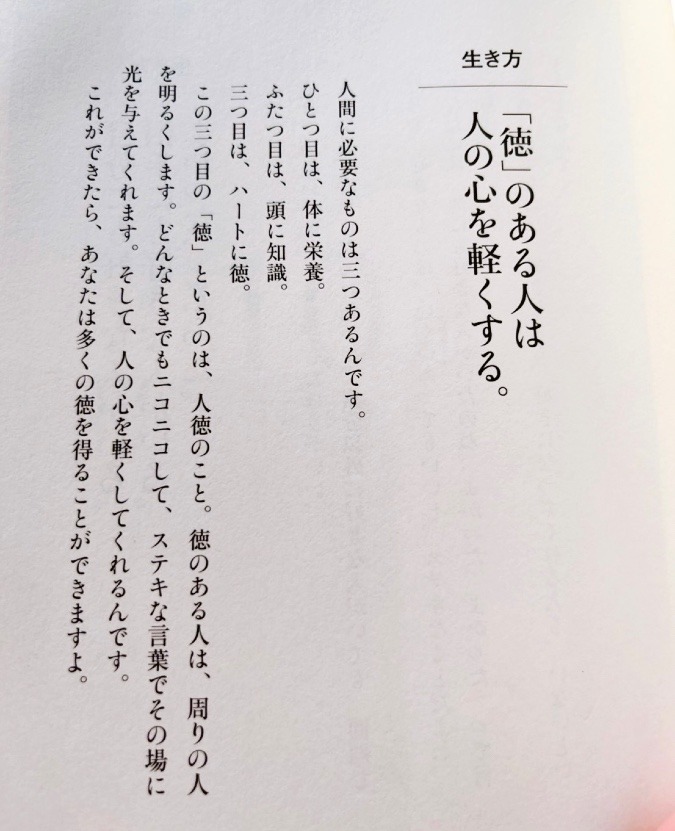 生き方
「徳」のある人は
人の心を軽くする。
人間に必要なものは三つあるんです。
ひとつ目は、体に栄養。
ふたつ目は、頭に知識。
三つ目は、ハートに徳。
この三つ目の「徳」というのは、人徳のこと。徳のある人は、周りの人
を明るくします。どんなときでもニコニコして、ステキな言葉でその場に
光を与えてくれます。そして、人の心を軽くしてくれるんです。
これができたら、あなたは多くの徳を得ることができますよ。